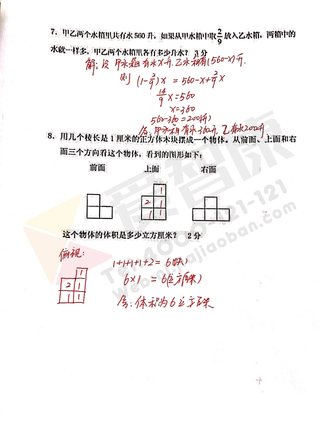 7. 甲乙两个水箱里共有水560升，如果从甲水箱中取2/9放入乙水箱，两箱中的
水就一样多，甲乙两个水箱里各有多少升水？3分
解：设甲水箱有水x升，乙水箱有(560-x)升.
则 (1-2/9)x = 560-x+2/9x
14/9 x = 560
x = 360
560-360=200(升)
答：甲水箱有水360升，乙有水200升
8. 用几个棱长是1厘米的正方体木块摆成一个物体。从前面、上面和右
面三个方向看这个物体，看到的图形如下：
前面 上面 右面
这个物体的体积是多少立方厘米？2分
俯视：
1+1+1+1+2 = 6(块)
6×1 = 6(立方厘米)
答：体积为6立方厘米
1
2 1
1 1
爱智康